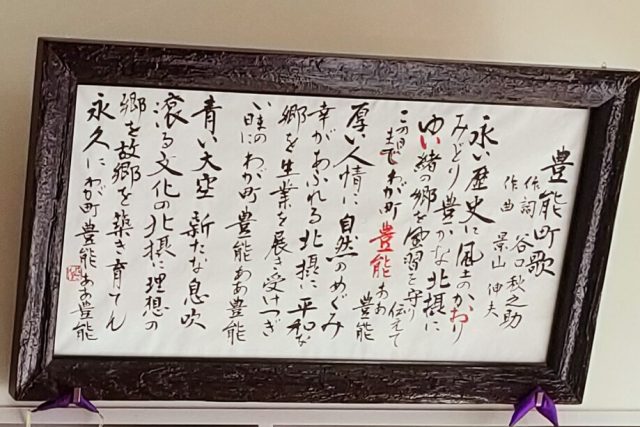 豊能町歌
作詞 谷口秋之助
作曲 景山伸夫
永い歴史に風土のかおり
みどり豊かな北摂に
ゆい緒の郷を 習を守り伝えて
この日までわが町豊能ああ豊能
厚い人情に自然のめぐみ
幸があふれる北摂に平和な
郷を生業を展べ受けつぎ
いまの日にわが町豊能ああ豊能
青い大空新たな息吹
滾る文化の北摂に理想の
郷を故郷を築き育てん
永久にわが町豊能ああ豊能